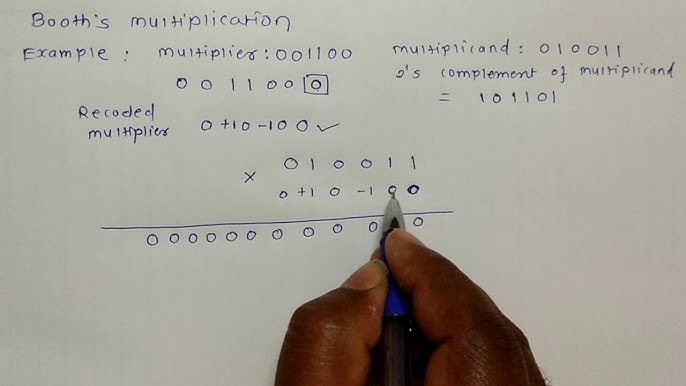 Booth's multiplication
Example : multiplier : 001100 multiplicand : 010011
0 0 1 1 0 0 0 2's complement of multiplicand
= 101101
Recoded
multiplier 0 +1 0 -1 0 0 ✓
0 1 0 0 1 1
× 0 +1 0 -1 0 0
0 0 0 0 0 0 0 0 0 0 0